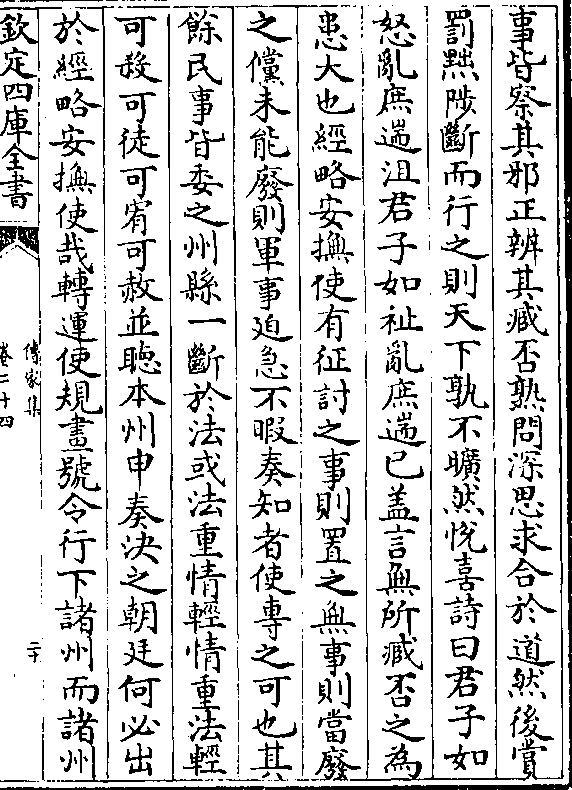 事皆察其邪正辨其臧否熟問深思求合於道然後賞
罰黜陟斷而行之則天下孰不曠然悅喜詩曰君子如
怒亂庶遄沮君子如祉亂庶遄已盖言無所臧否之為
患大也經略安撫使有征討之事則置之無事則當廢
之儻未能廢則軍事廹急不暇奏知者使專之可也其
餘民事皆委之州縣一斷於法或法重情輕情重法輕
可殺可徒可宥可赦並聽本州申奏決之朝廷何必出
於經略安撫使哉轉運使規畫號令行下諸州而諸州
欽定四庫全書
傳家集
卷二十四
二十